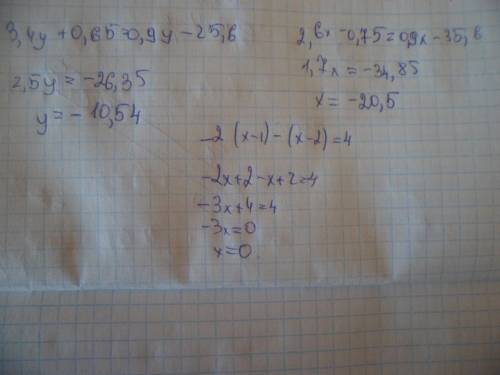 3,4y + 0,65 = 0,9y - 25,6
2,5y = -26,35
y = - 10,54
2,6x - 0,75 = 0,9x - 35,6
1,7x = -34,85
x = -20,5
-2 (x-1) - (x-2) = 4
-2x+2-x+2=4
-3x+4=4
-3x=0
x=0